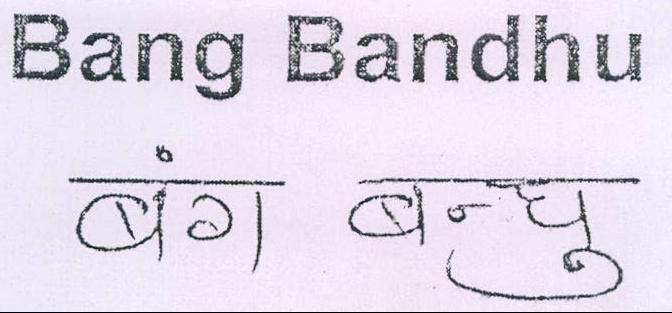 Bang Bandhu
बंग बन्धु